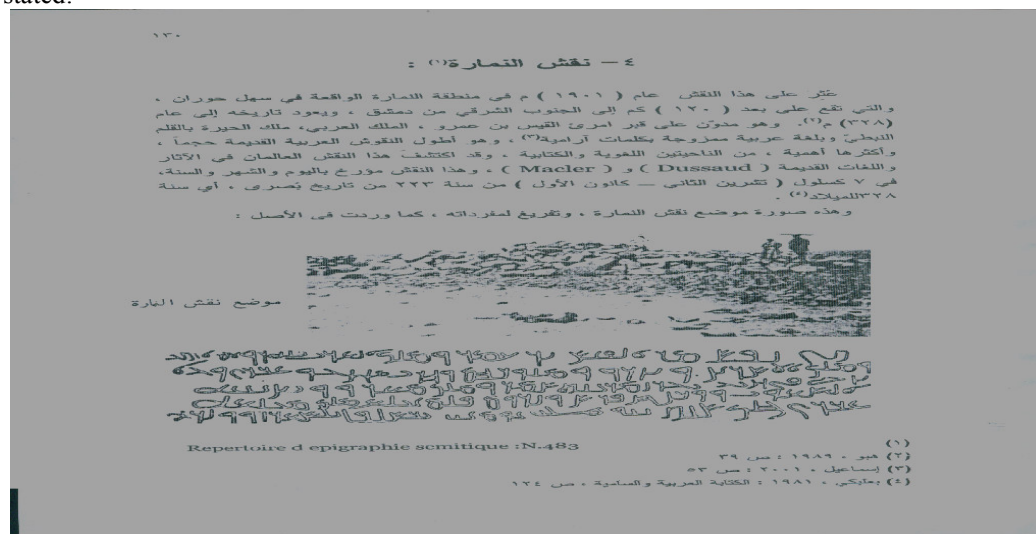 stated.
١٣٠
٤ – نقش النمارة(١) :
عُثر على هذا النقش عام ( ١٩٠١ ) م في منطقة النمارة الواقعة في سهل حوران ،
والتي تقع على بعد ( ١٢٠ ) كم إلى الجنوب الشرقي من دمشق ، ويعود تاريخه إلى عام
(٣٢٨) م(٢). وهو مدوّن على قبر امرئ القيس بن عمرو ، الملك العربي، ملك الحيرة بالقلم
النبطيّ وبلغة عربية ممزوجة بكلمات آرامية(٣) ، وهو أطول النقوش العربية القديمة حجماً ،
وأكثرها أهمية ، من الناحيتين اللغوية والكتابية ، وقد اكتشف هذا النقش العالمان في الآثار
واللغات القديمة ( Dussaud ) و ( Macler ) ، وهذا النقش مؤرخ باليوم والشهر والسنة،
في ٧ كسلول ( تشرين الثاني – كانون الأول ) من سنة ٢٢٣ من تاريخ بُصرى ، أي سنة
٣٢٨للميلاد(٤) .
وهذه صورة موضع نقش النمارة ، وتفريغ لمفرداته ، كما وردت في الأصل :
موضع نقش النمارة
(١) Repertoire d epigraphie scmitique :N.483
(٢) هبو ، ١٩٨٩ : ص ٣٩
(٣) إسماعيل ، ٢٠٠١ : ص ٥٣
(٤) بعلبكي ، ١٩٨١ : الكتابة العربية والسامية ، ص ١٢٤